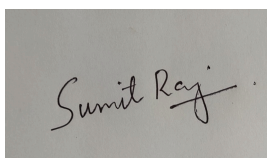 Sumit Raj.